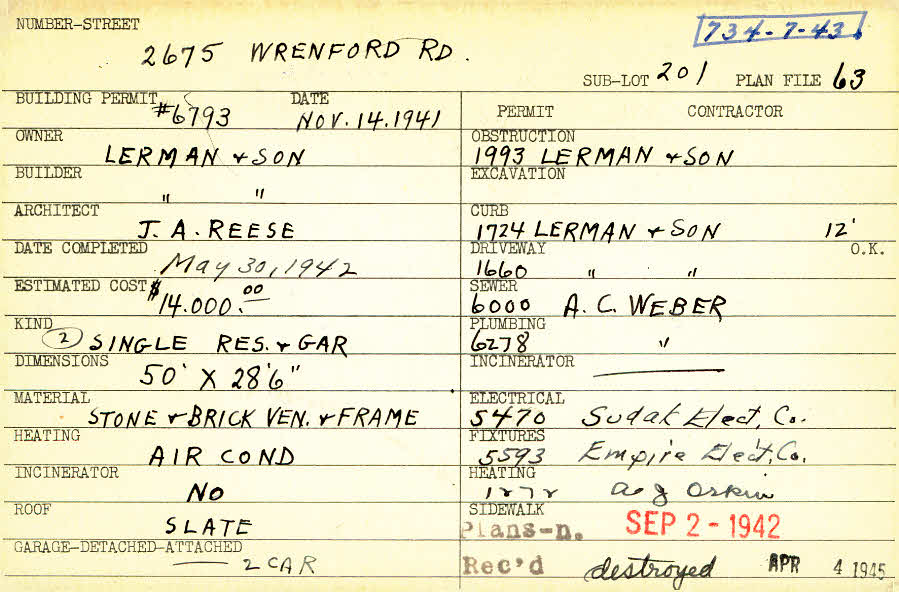 NUMBER-STREET
734-7-43
2675 WRENFORD RD.
SUB-LOT 201 PLAN FILE 63
BUILDING PERMIT #6793 DATE NOV. 14. 1941
OWNER LERMAN + SON
BUILDER " "
ARCHITECT J. A. REESE
DATE COMPLETED May 30, 1942
ESTIMATED COST $14.000.00
KIND (2) SINGLE RES. + GAR
DIMENSIONS 50' X 28'6"
MATERIAL STONE + BRICK VEN. + FRAME
HEATING AIR COND
INCINERATOR NO
ROOF SLATE
GARAGE-DETACHED-ATTACHED 2 CAR
PERMIT CONTRACTOR
OBSTRUCTION 1993 LERMAN + SON
EXCAVATION
CURB 1724 LERMAN + SON 12'
DRIVEWAY 1660 " " O.K.
SEWER 6000 A. C. WEBER
PLUMBING 6278 "
INCINERATOR
ELECTRICAL 5470 Sudak Elect, Co.
FIXTURES 5593 Empire Elect, Co.
HEATING
SIDEWALK
Plans-n. SEP 2 - 1942
Rec'd destroyed APR 4 1945